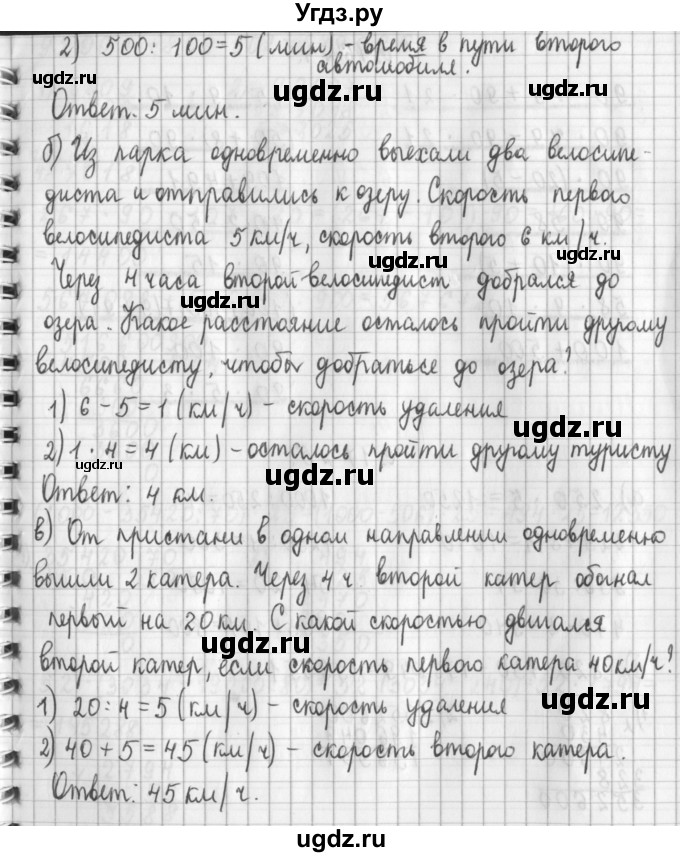 Угдз.ру
2) 500 : 100 = 5 (мин) - время в пути второго
автомобиля.
Ответ: 5 мин.
б) Из парка одновременно выехали два велосипе-
диста и отправились к озеру. Скорость первого
велосипедиста 5 км/ч, скорость второго 6 км/ч.
Через 4 часа второй велосипедист добрался до
озера. Какое расстояние осталось пройти другому
велосипедисту, чтобы добраться до озера?
1) 6 - 5 = 1 (км/ч) - скорость удаления
2) 1 · 4 = 4 (км) - осталось пройти другому туристу
Ответ: 4 км.
в) От пристани в одном направлении одновременно
вышли 2 катера. Через 4 ч второй катер обогнал
первый на 20 км. С какой скоростью двигался
второй катер, если скорость первого катера 40 км/ч?
1) 20 : 4 = 5 (км/ч) - скорость удаления
2) 40 + 5 = 45 (км/ч) - скорость второго катера.
Ответ: 45 км/ч.
ugdz.ru
ugdz.ru
ugdz.ru
ugdz.ru
ugdz.ru
ugdz.ru
ugdz.ru
ugdz.ru
ugdz.ru
ugdz.ru
ugdz.ru
ugdz.ru
ugdz.ru
ugdz.ru